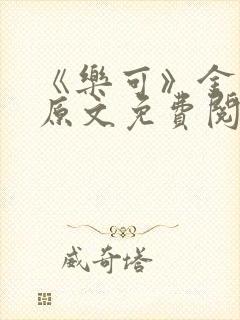 《樂可》金
原文免費閱
威奇塔